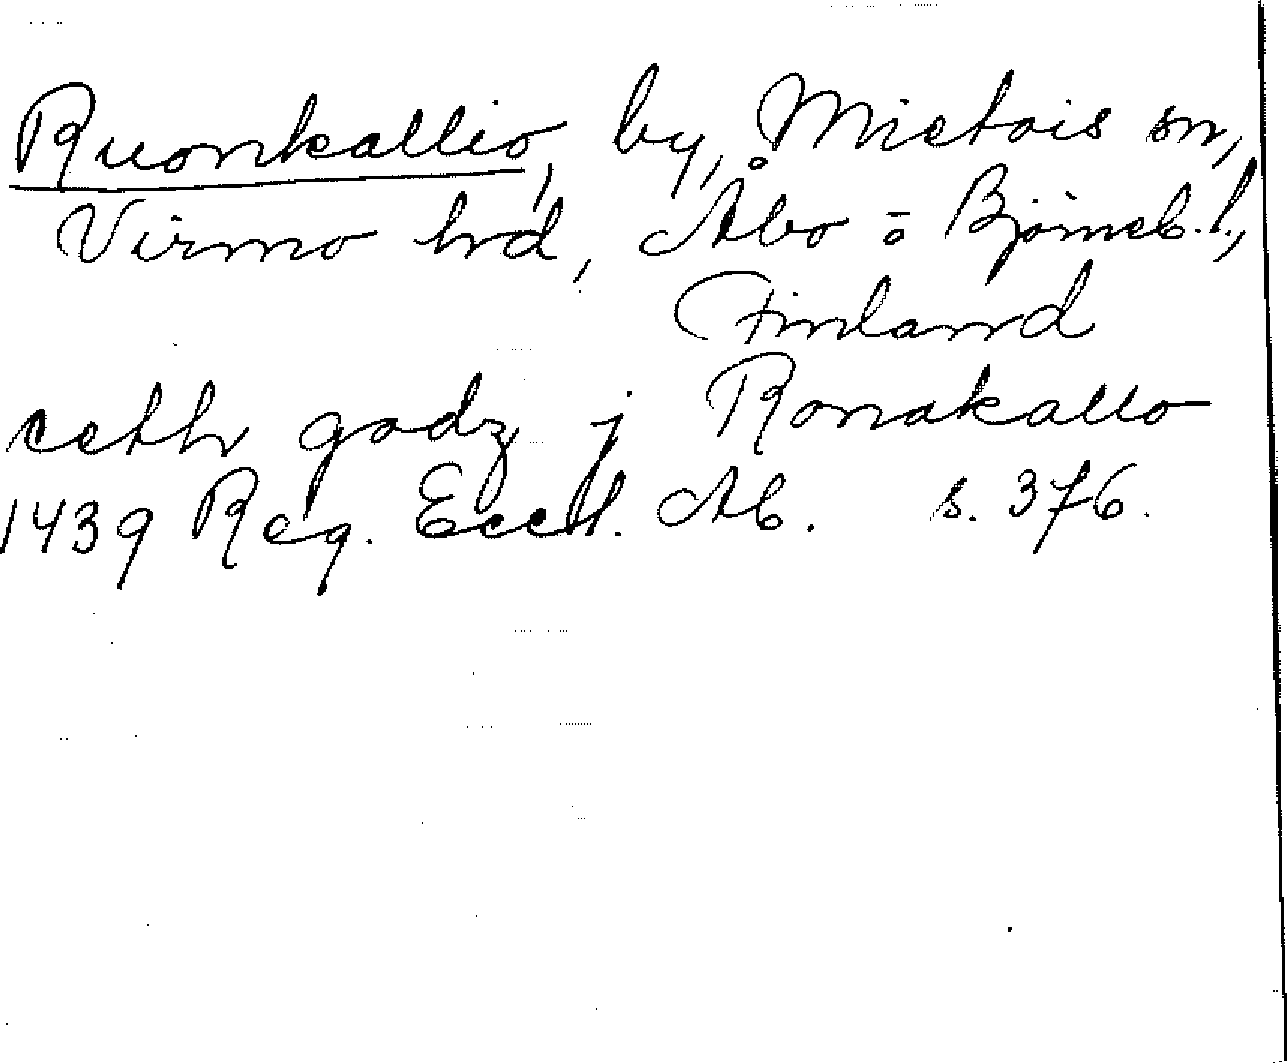 Ruonkallio, by, Mietois sn,
Virmo hrd, Åbo o Björneb. l.,
Finland
eeth godz j Ronakallo
1439 Reg. Eccl. Ab. s. 376.